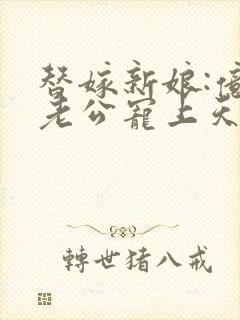 替嫁新娘:億
老公寵上天
轉世猪八戒